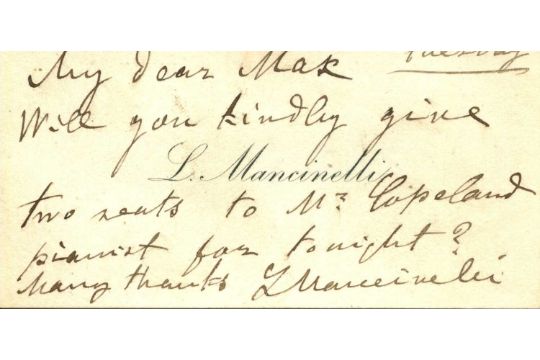 Tuesday
My dear Max
Will you kindly give
L. Mancinelli
two seats to Mr. Copeland
pianist for tonight?
Many thanks LMancinelli